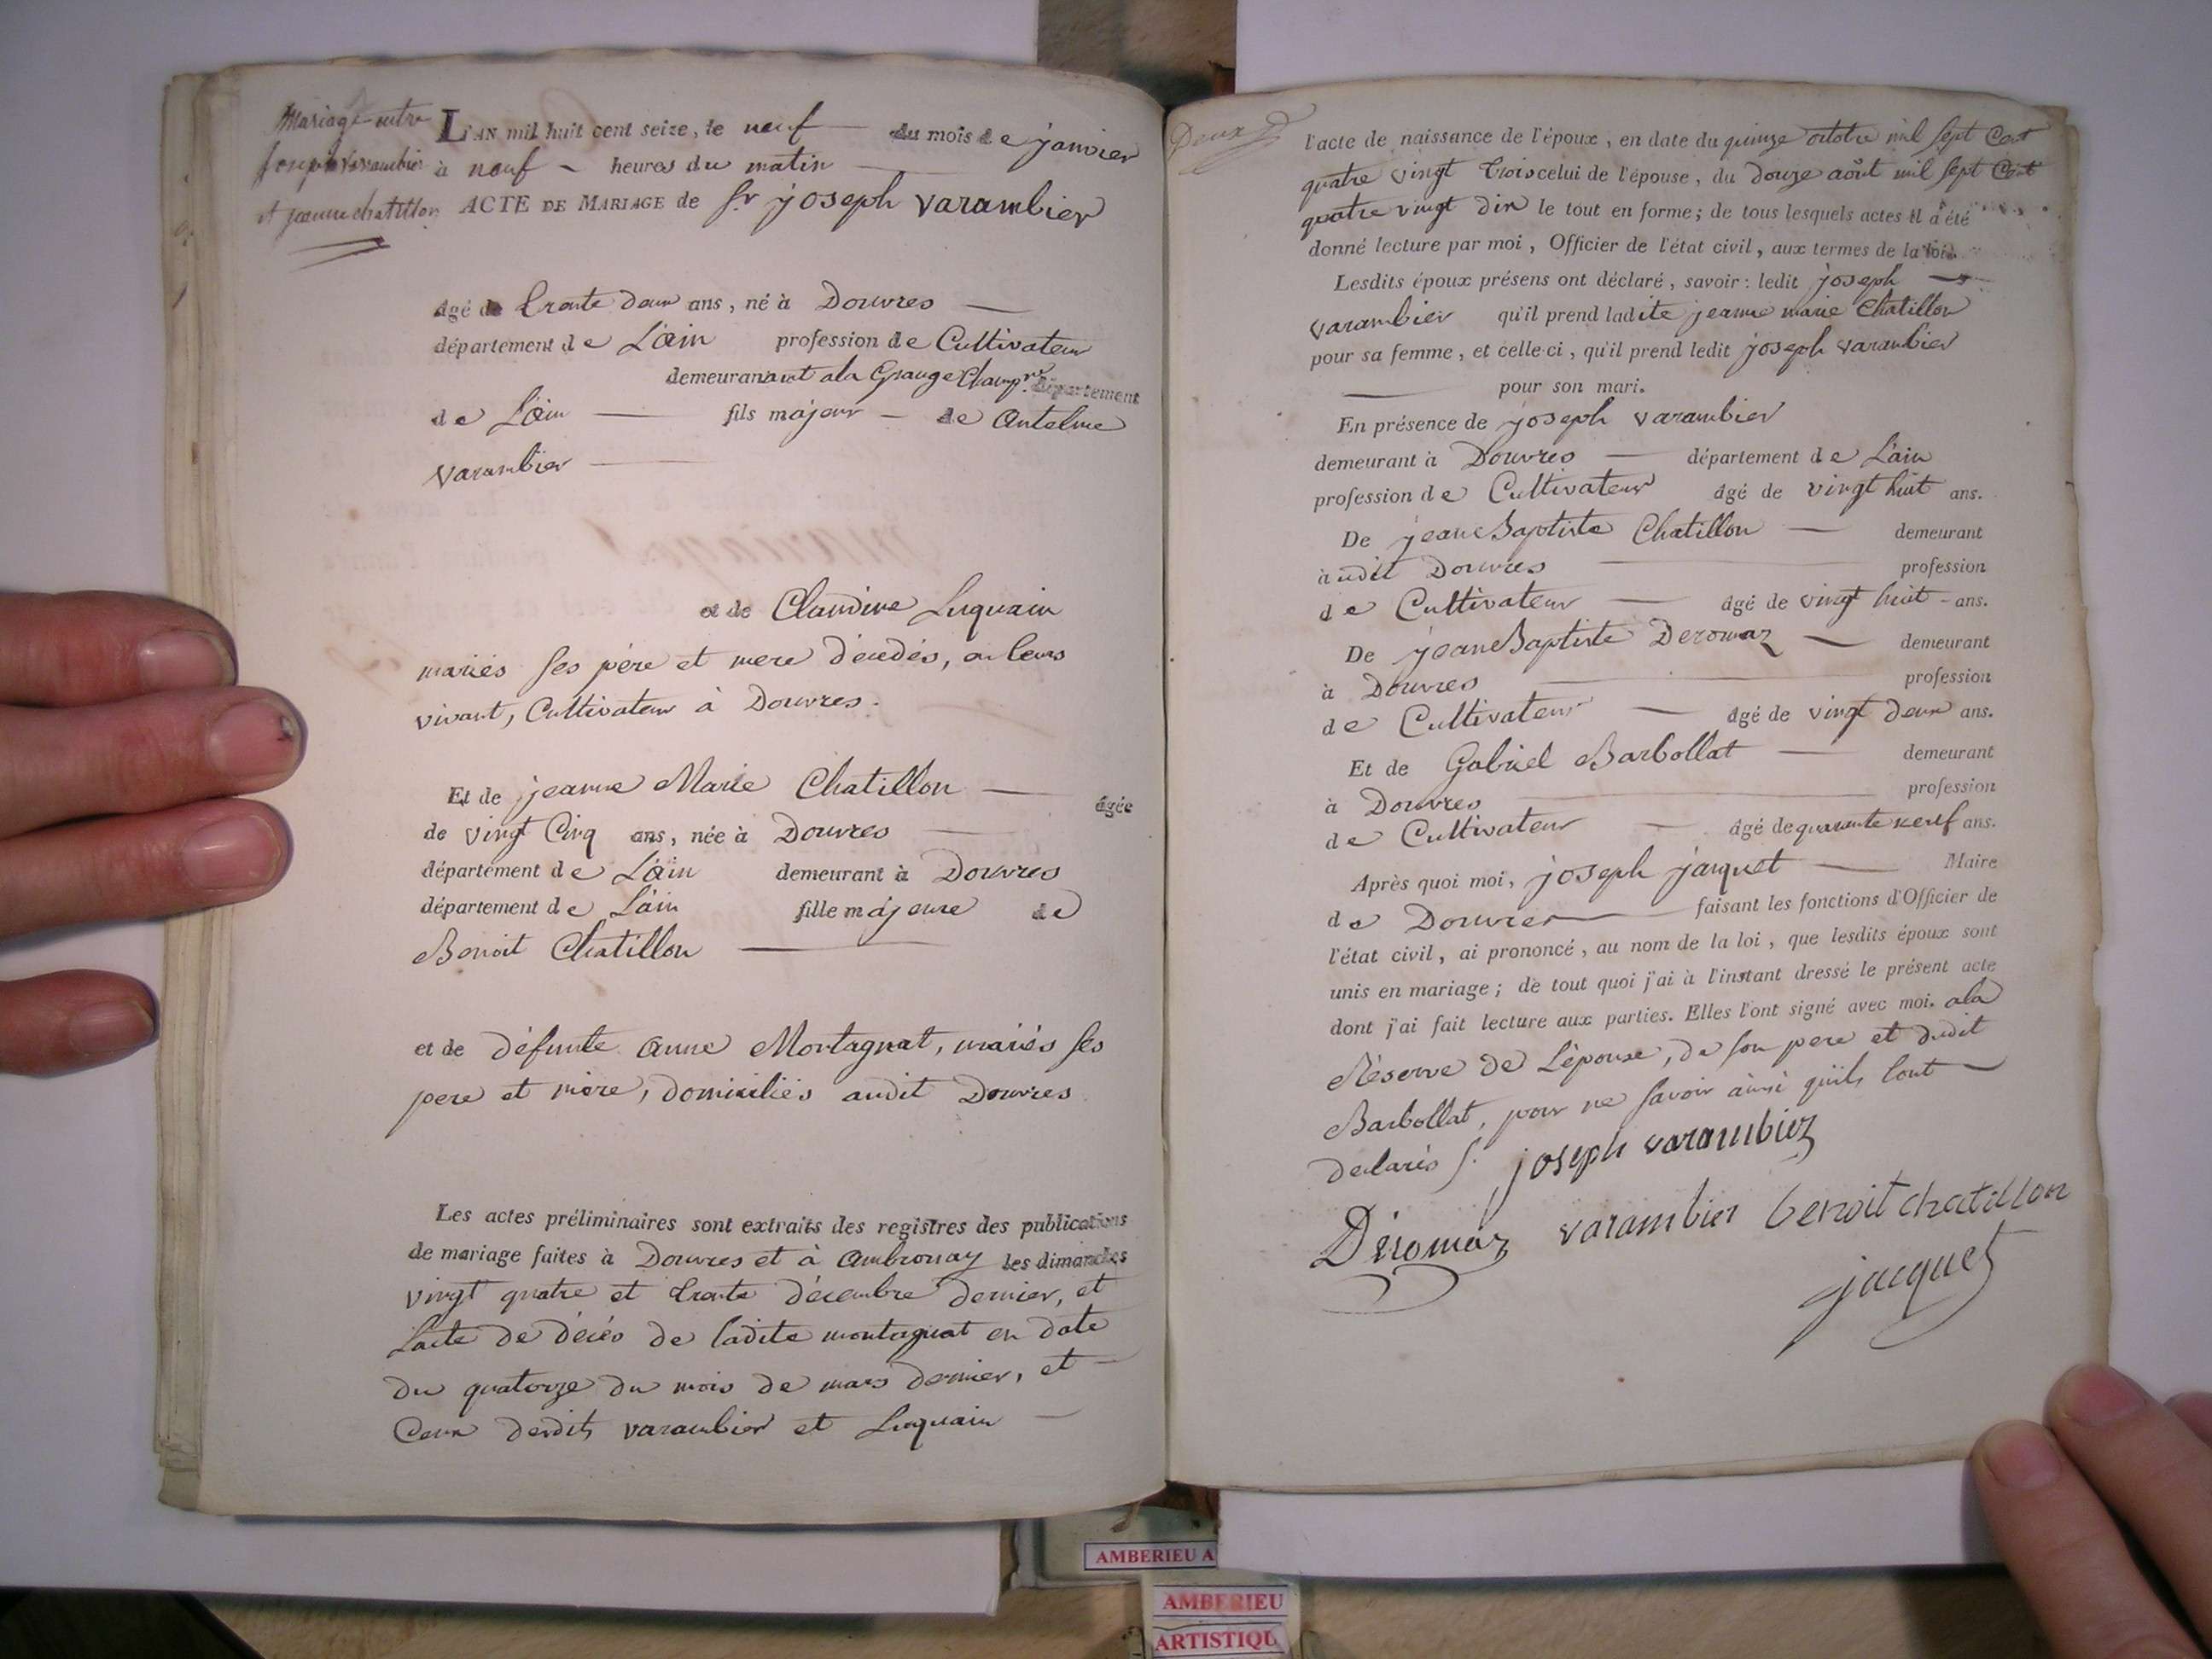 Mariage entre
Joseph Varambier
et jeanne chatillon
L'AN mil huit cent seize, le neuf du mois de janvier
à neuf heures du matin
ACTE DE MARIAGE de Sr joseph Varambier
âgé de trente deux ans, né à Douvres
département de L'ain profession de Cultivateur
demeurant ala Grange Champ.re département
de L'ain fils majeur de Antelme
Varambier
et de Claudine Luquain
mariés ses père et mere décédés, en leurs
vivant, Cultivateur à Douvres.
Et de jeanne Marie Chatillon âgée
de vingt Cinq ans, née à Douvres
département de L'ain demeurant à Douvres
département de L'ain fille majeure de
Benoit Chatillon
et de défunte anne Montagnat, mariés ses
pere et mère, domiciliés audit Douvres
Les actes préliminaires sont extraits des registres des publications
de mariage faites à Douvres et à Ambronay les dimanches
vingt quatre et trente décembre dernier, et
l'acte de décés de ladite montagnat en date
du quatorze du mois de mars dernier, et
Ceux desdits varambier et Luquain
Deux
l'acte de naissance de l'époux, en date du quinze octobre mil sept Cent
quatre vingt trois celui de l'épouse, du douze août mil sept Cent
quatre vingt dix le tout en forme; de tous lesquels actes il a été
donné lecture par moi, Officier de l'état civil, aux termes de la loi.
Lesdits époux présens ont déclaré, savoir: ledit joseph
varambier qu'il prend ladite jeanne marie Chatillon
pour sa femme, et celle-ci, qu'il prend ledit joseph varambier
pour son mari.
En présence de joseph varambier
demeurant à Douvres département de L'ain
profession de Cultivateur âgé de vingt huit ans.
De jean Baptiste Chatillon demeurant
à udit Douvres profession
de Cultivateur âgé de vingt huit ans.
De jean Baptiste Deromaz demeurant
à Douvres profession
de Cultivateur âgé de vingt deux ans.
Et de Gabriel Barbollat demeurant
à Douvres profession
de Cultivateur âgé de quarante neuf ans.
Après quoi moi, joseph jacquet Maire
de Douvres faisant les fonctions d'Officier de
l'état civil, ai prononcé, au nom de la loi, que lesdits époux sont
unis en mariage; de tout quoi j'ai à l'instant dressé le présent acte
dont j'ai fait lecture aux parties. Elles l'ont signé avec moi. ala
Réserve de L'épouse, de son pere et dudit
Barbollat, pour ne savoir ainsi qu'ils l'ont
declarés f. joseph varambier
Déromaz varambier benoit chatillon
jacquet
AMBERIEU A
AMBERIEU
ARTISTIQU